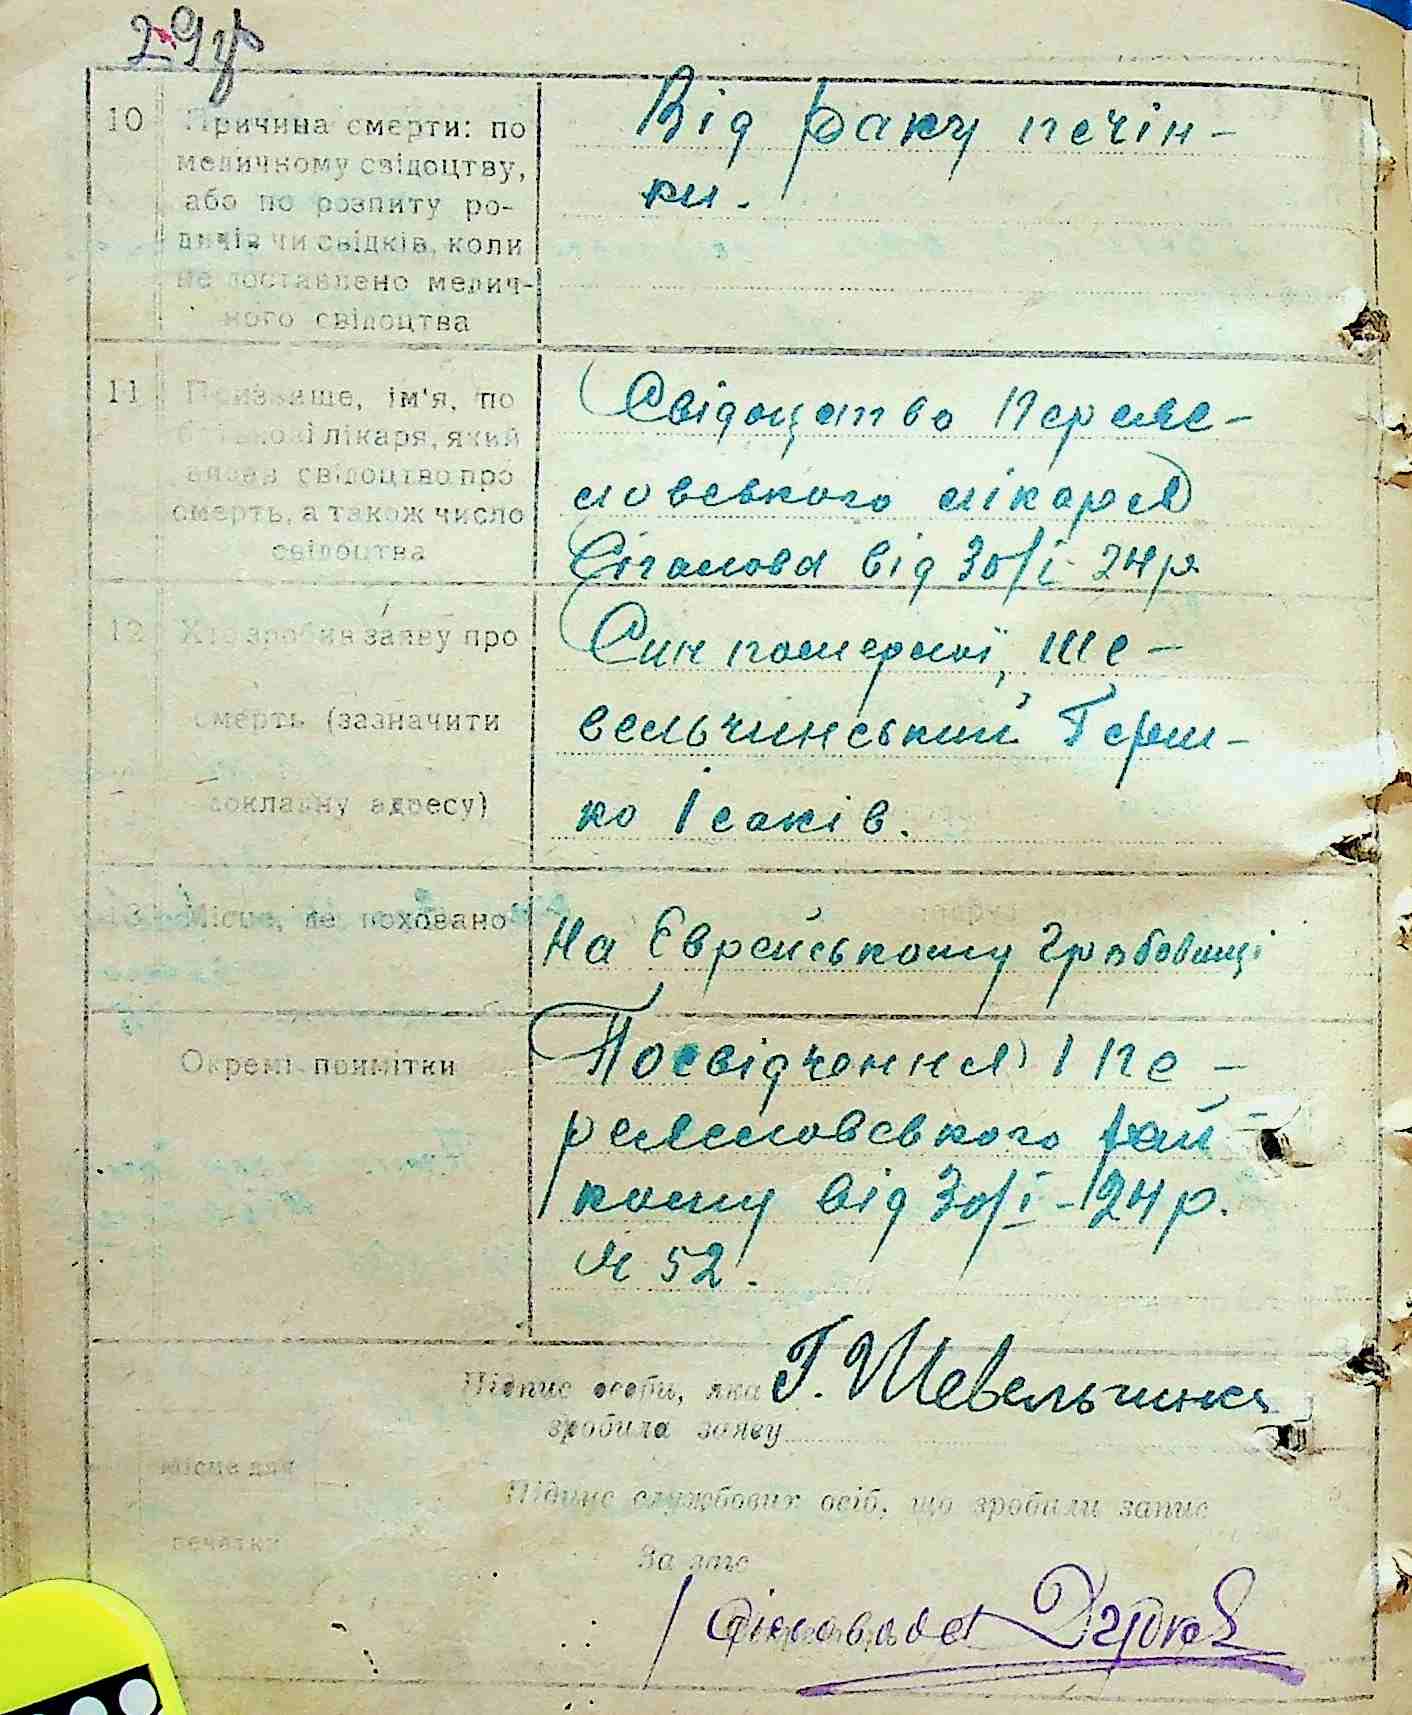 29
10
Причина смерти: по
медичному свідоцтву,
або по розпиту ро-
дичів чи свідків, коли
не доставлено медич-
ного свідоцтва
Від раку печін-
ки.
11
Призвище, ім'я, по
батькові лікаря, який
видав свідоцтво про
смерть, а також число
свідоцтва
Свідоцтво Переяс-
ловського лікаря
від 30/I-24р.
12
Хто зробив заяву про
смерть (зазначити
докладну адресу)
Син помершої, Ше-
вельчинський Герш-
ко Ісаків.
13
Місце, де поховано
На Єврейському гробовищі
Окремі примітки
Посвідчення І Пе-
реясловського рай-
кому від 30/I-24р.
№ 52.
Підпис особи, яка
зробила заяву
Г. Шевельчинск
Місце для
печатки
Підпис службових осіб, що зробили запис
За загс
Діловод